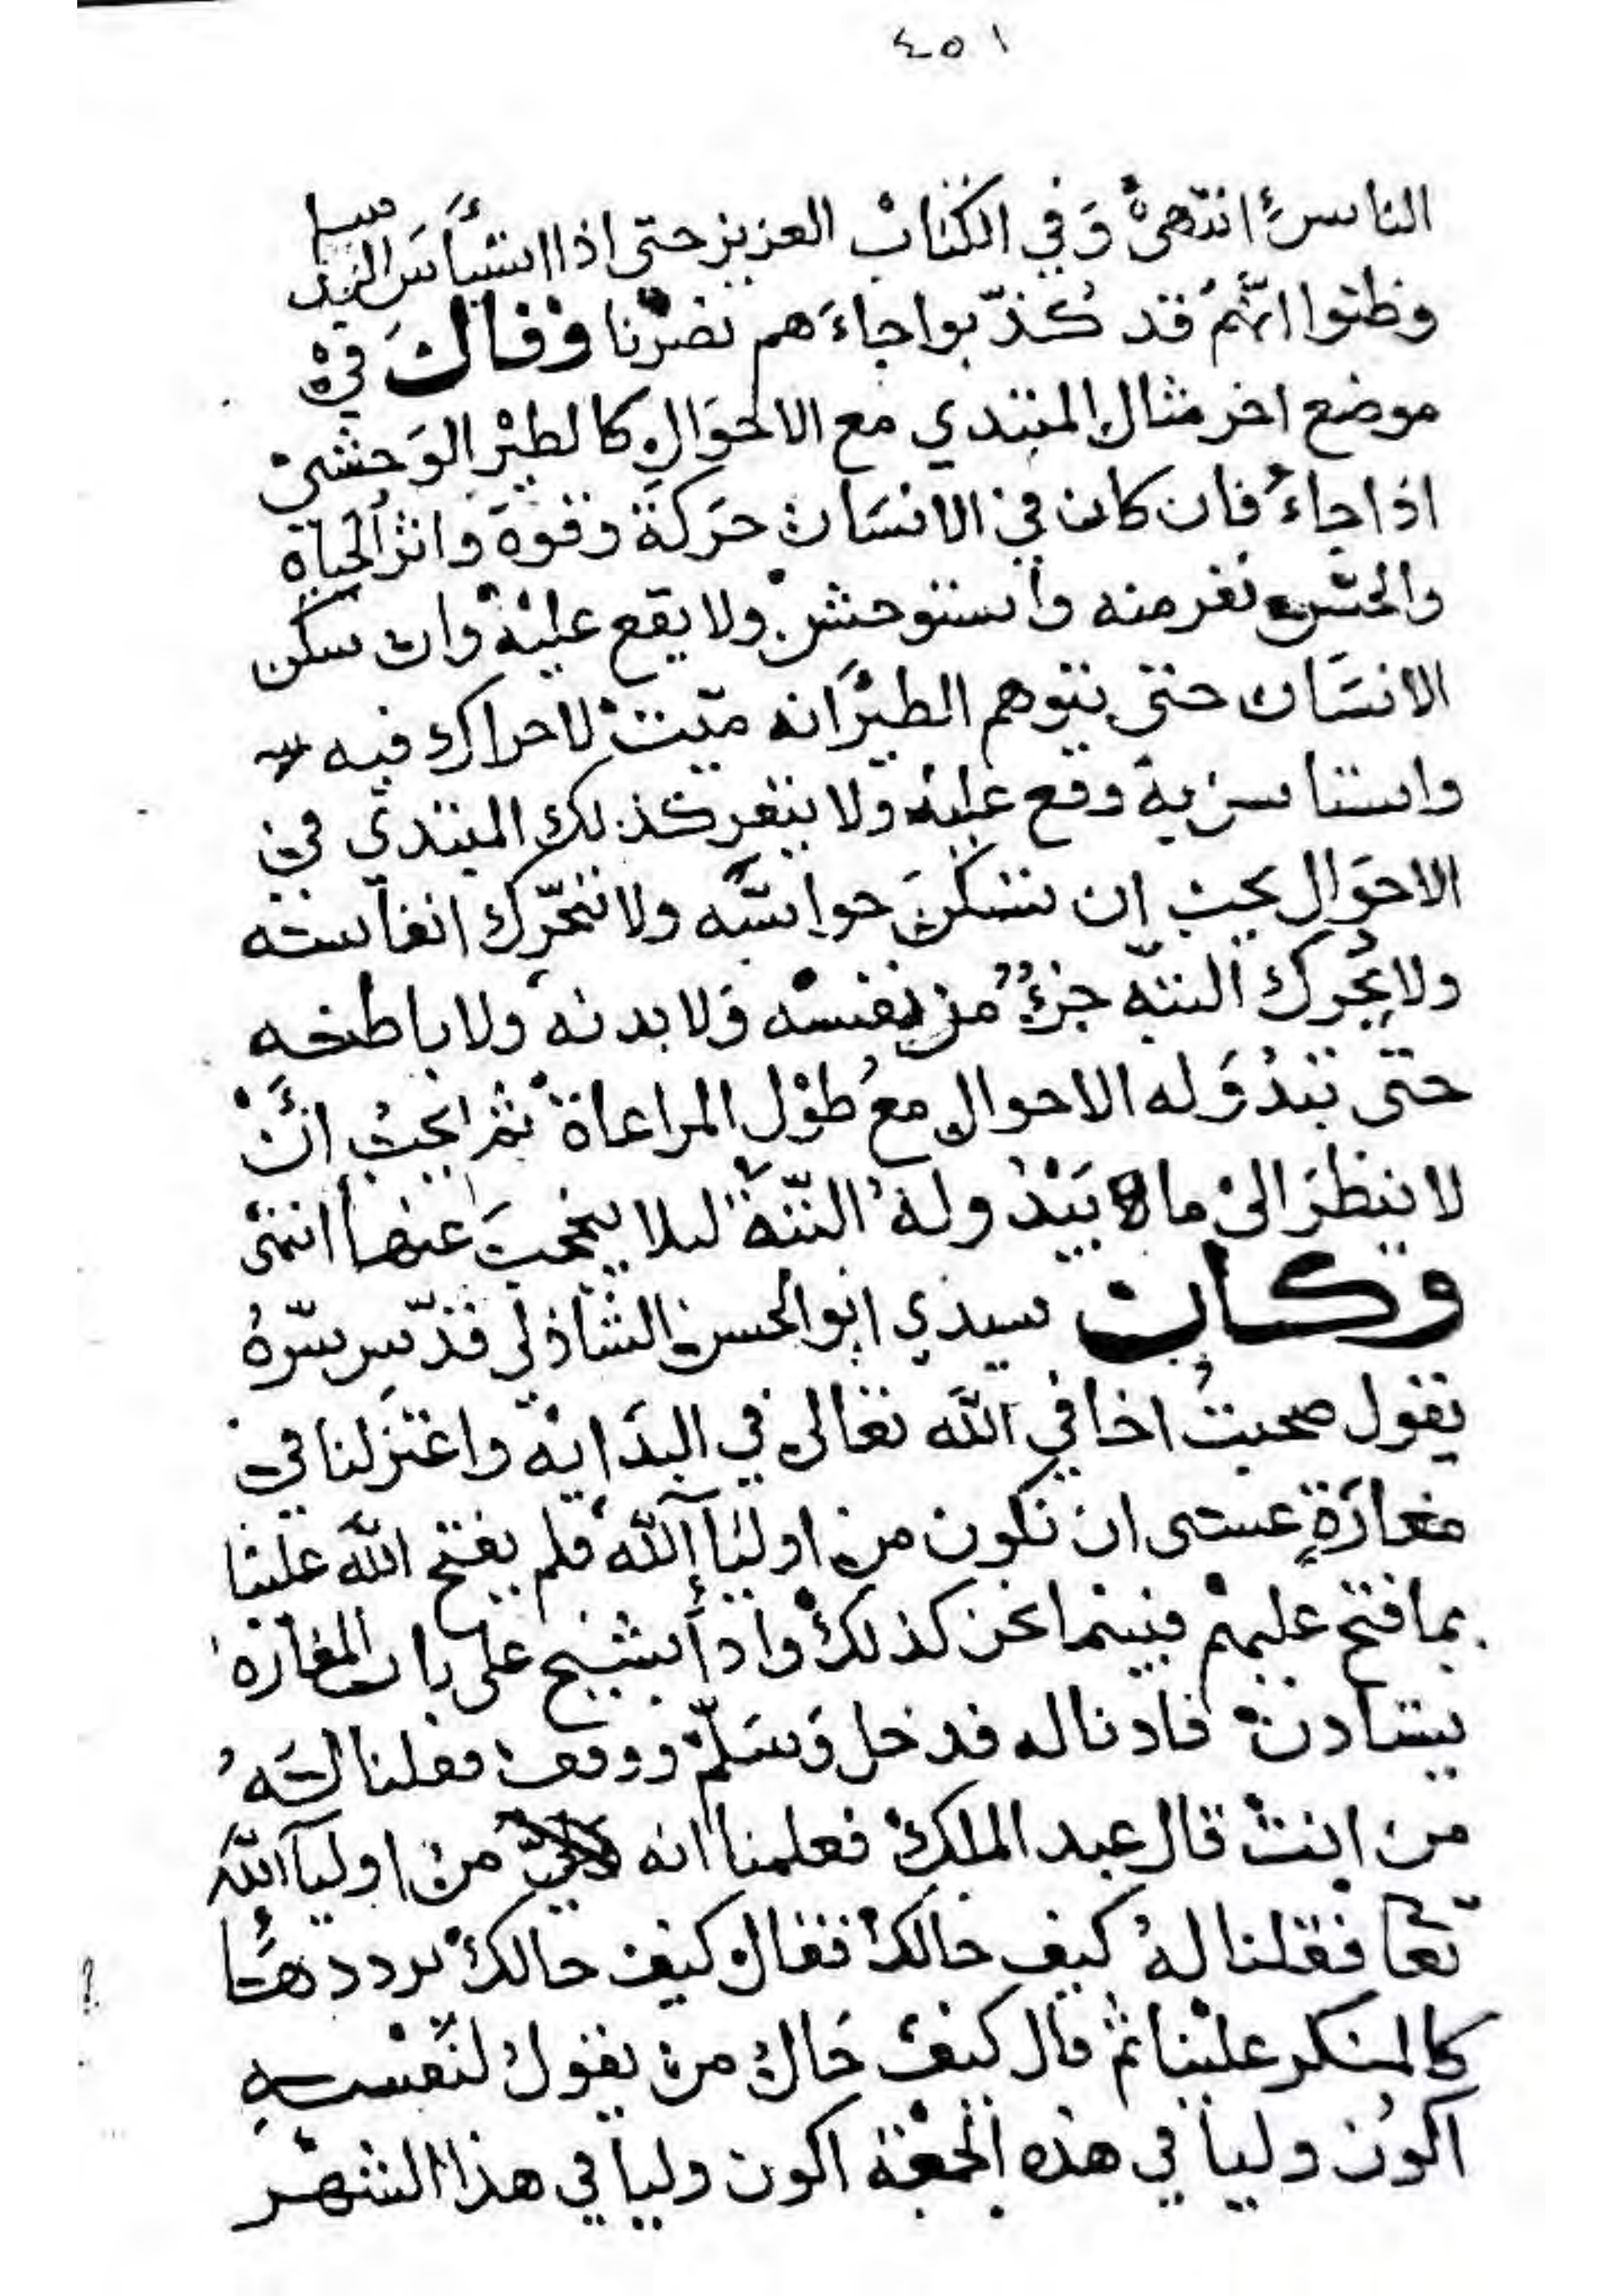 ٤٥١
الناس انتهى وفي الكتاب العزيز حتى اذا استيأس الرسل
وظنوا انهم قد كُذّبوا جاءَهم نصرنا وقال في
موضع اخر مثال المبتدي مع الاحوال كالطير الوحشي
اذا جاء فان كان في الانسان حركة وقوة واثر الحياة
والحس نفر منه واستوحش ولا يقع عليه وان سكن
الانسان حتى يتوهم الطير انه ميت لا حراك فيه
واستانس به وقع عليه ولا ينفر كذلك المبتدي في
الاحوال يجب ان تسكن حواسّه ولا تتحرّك انفاسه
ولا يحرك البتّه جزءٌ من نفسه ولا بدنه ولا باطنه
حتى تبدُوَ له الاحوال مع طول المراعاة ثم يجب انّ
لا ينظر الى ما يَبْدُو له البتّة ليلا يحجب عنها انتهى
وكان سيدي ابو الحسن الشاذلي قدّس سرّهُ
يقول صحبتُ اخا في الله تعالى في البداية واعتزلنا في
مغارَةٍ عسى ان نكون من اوليآ الله فلم يفتح الله علينا
بما فتح عليهم فبينما نحن كذلك واذا بشيخ على باب المغارة
يستادن فادنا له فدخل وَسَلّم ووقف فقلنا لهُ
من انت قال عبد الملك فعلمنا انه من اوليآ الله
تعا فقلنا لهُ كيف حالك فقال كيف حالك يرددها
كالمنكر علينا ثم قال كيف حال من يقول لنفسهِ
اكون وليا في هذه الجمعة اكون وليا في هذا الشهر